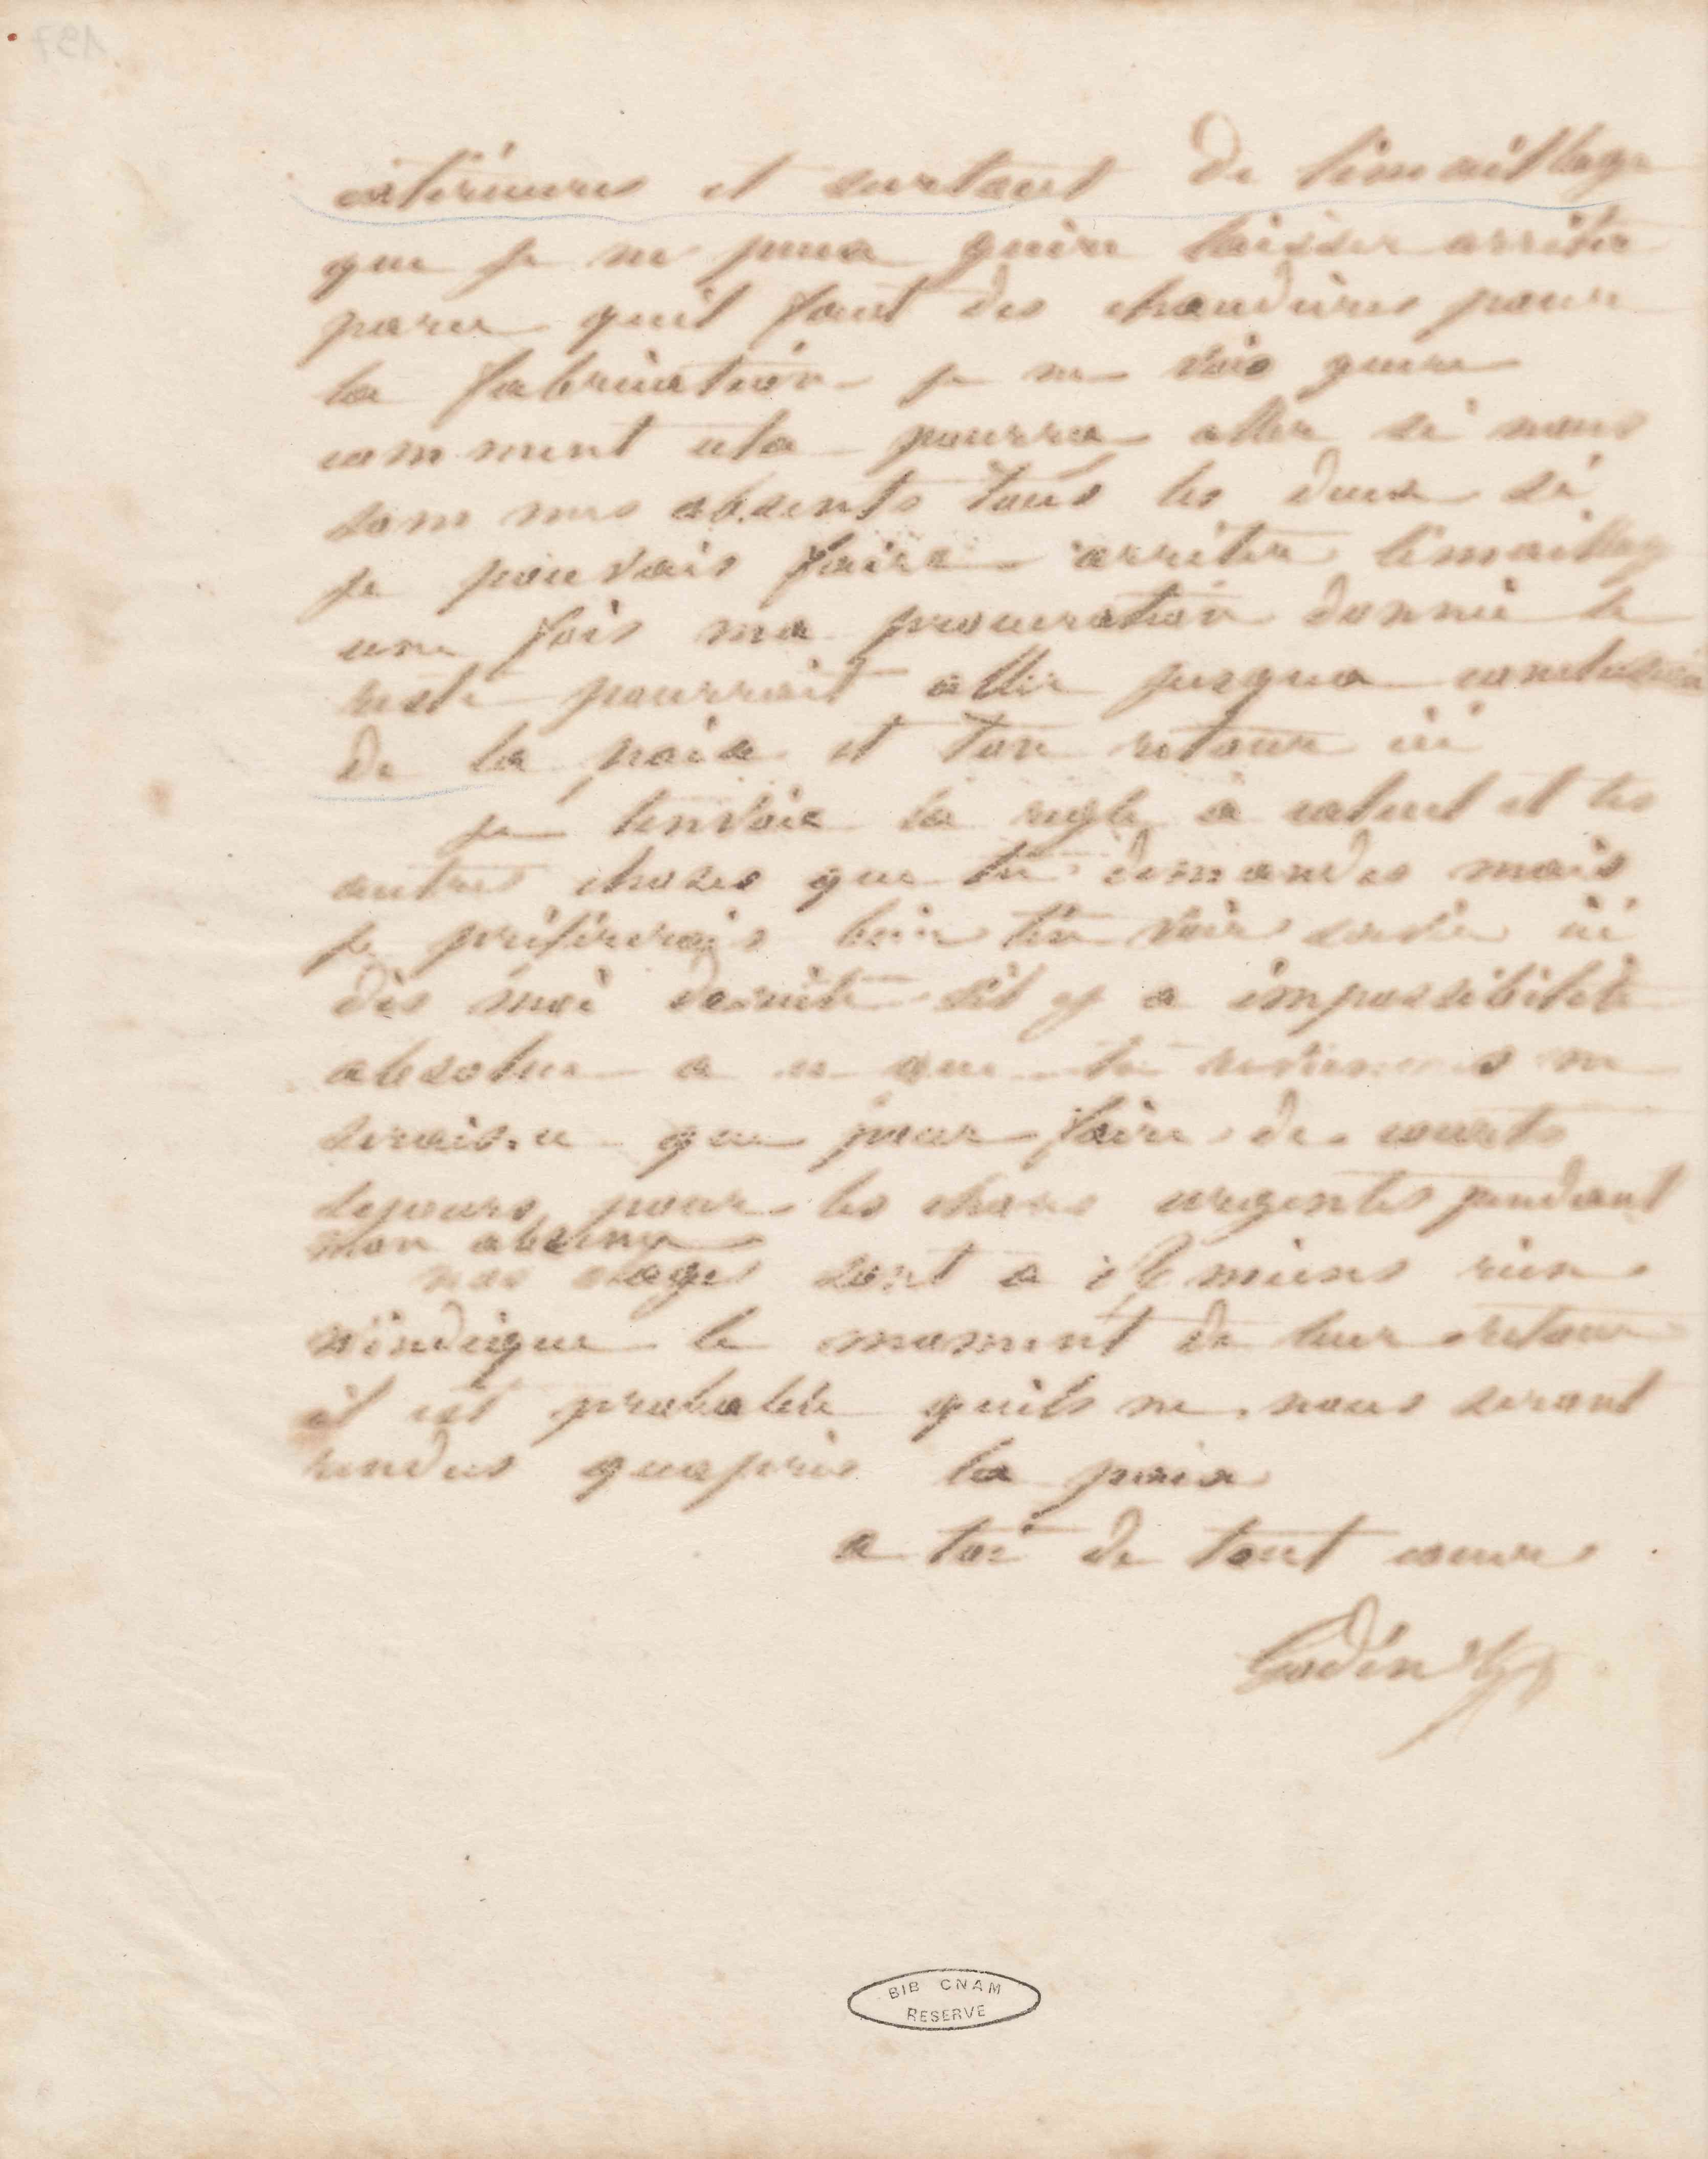 extérieures et surtout de lémaillage
que je ne peux guère laisser arrêter
parce quil faut des chaudières pour
la fabrication je ne vois guere
comment cela pourra aller si nous
sommes absents tous les deux si
je pouvais faire arrêter lémaillage
une fois ma procuration donnée le
reste pourrait aller jusqua conclusion
de la paix et ton retour ici
je tenvoie la regle à calcul et les
autres choses que tu demandes mais
je préférerais bien voir ici
dis moi desuite sil y a impossibilité
absolue a ce que tu reviennes ne
serais-ce que pour faire de courts
sejours pour les choses urgentes pendant
mon absence
nos otages sont a Amiens rien
n'indique le moment de leur retour
il est probable quils ne nous seront
rendus quaprès la paix
a toi de tout coeur
Godin
BIB CNAM
RESERVE
197